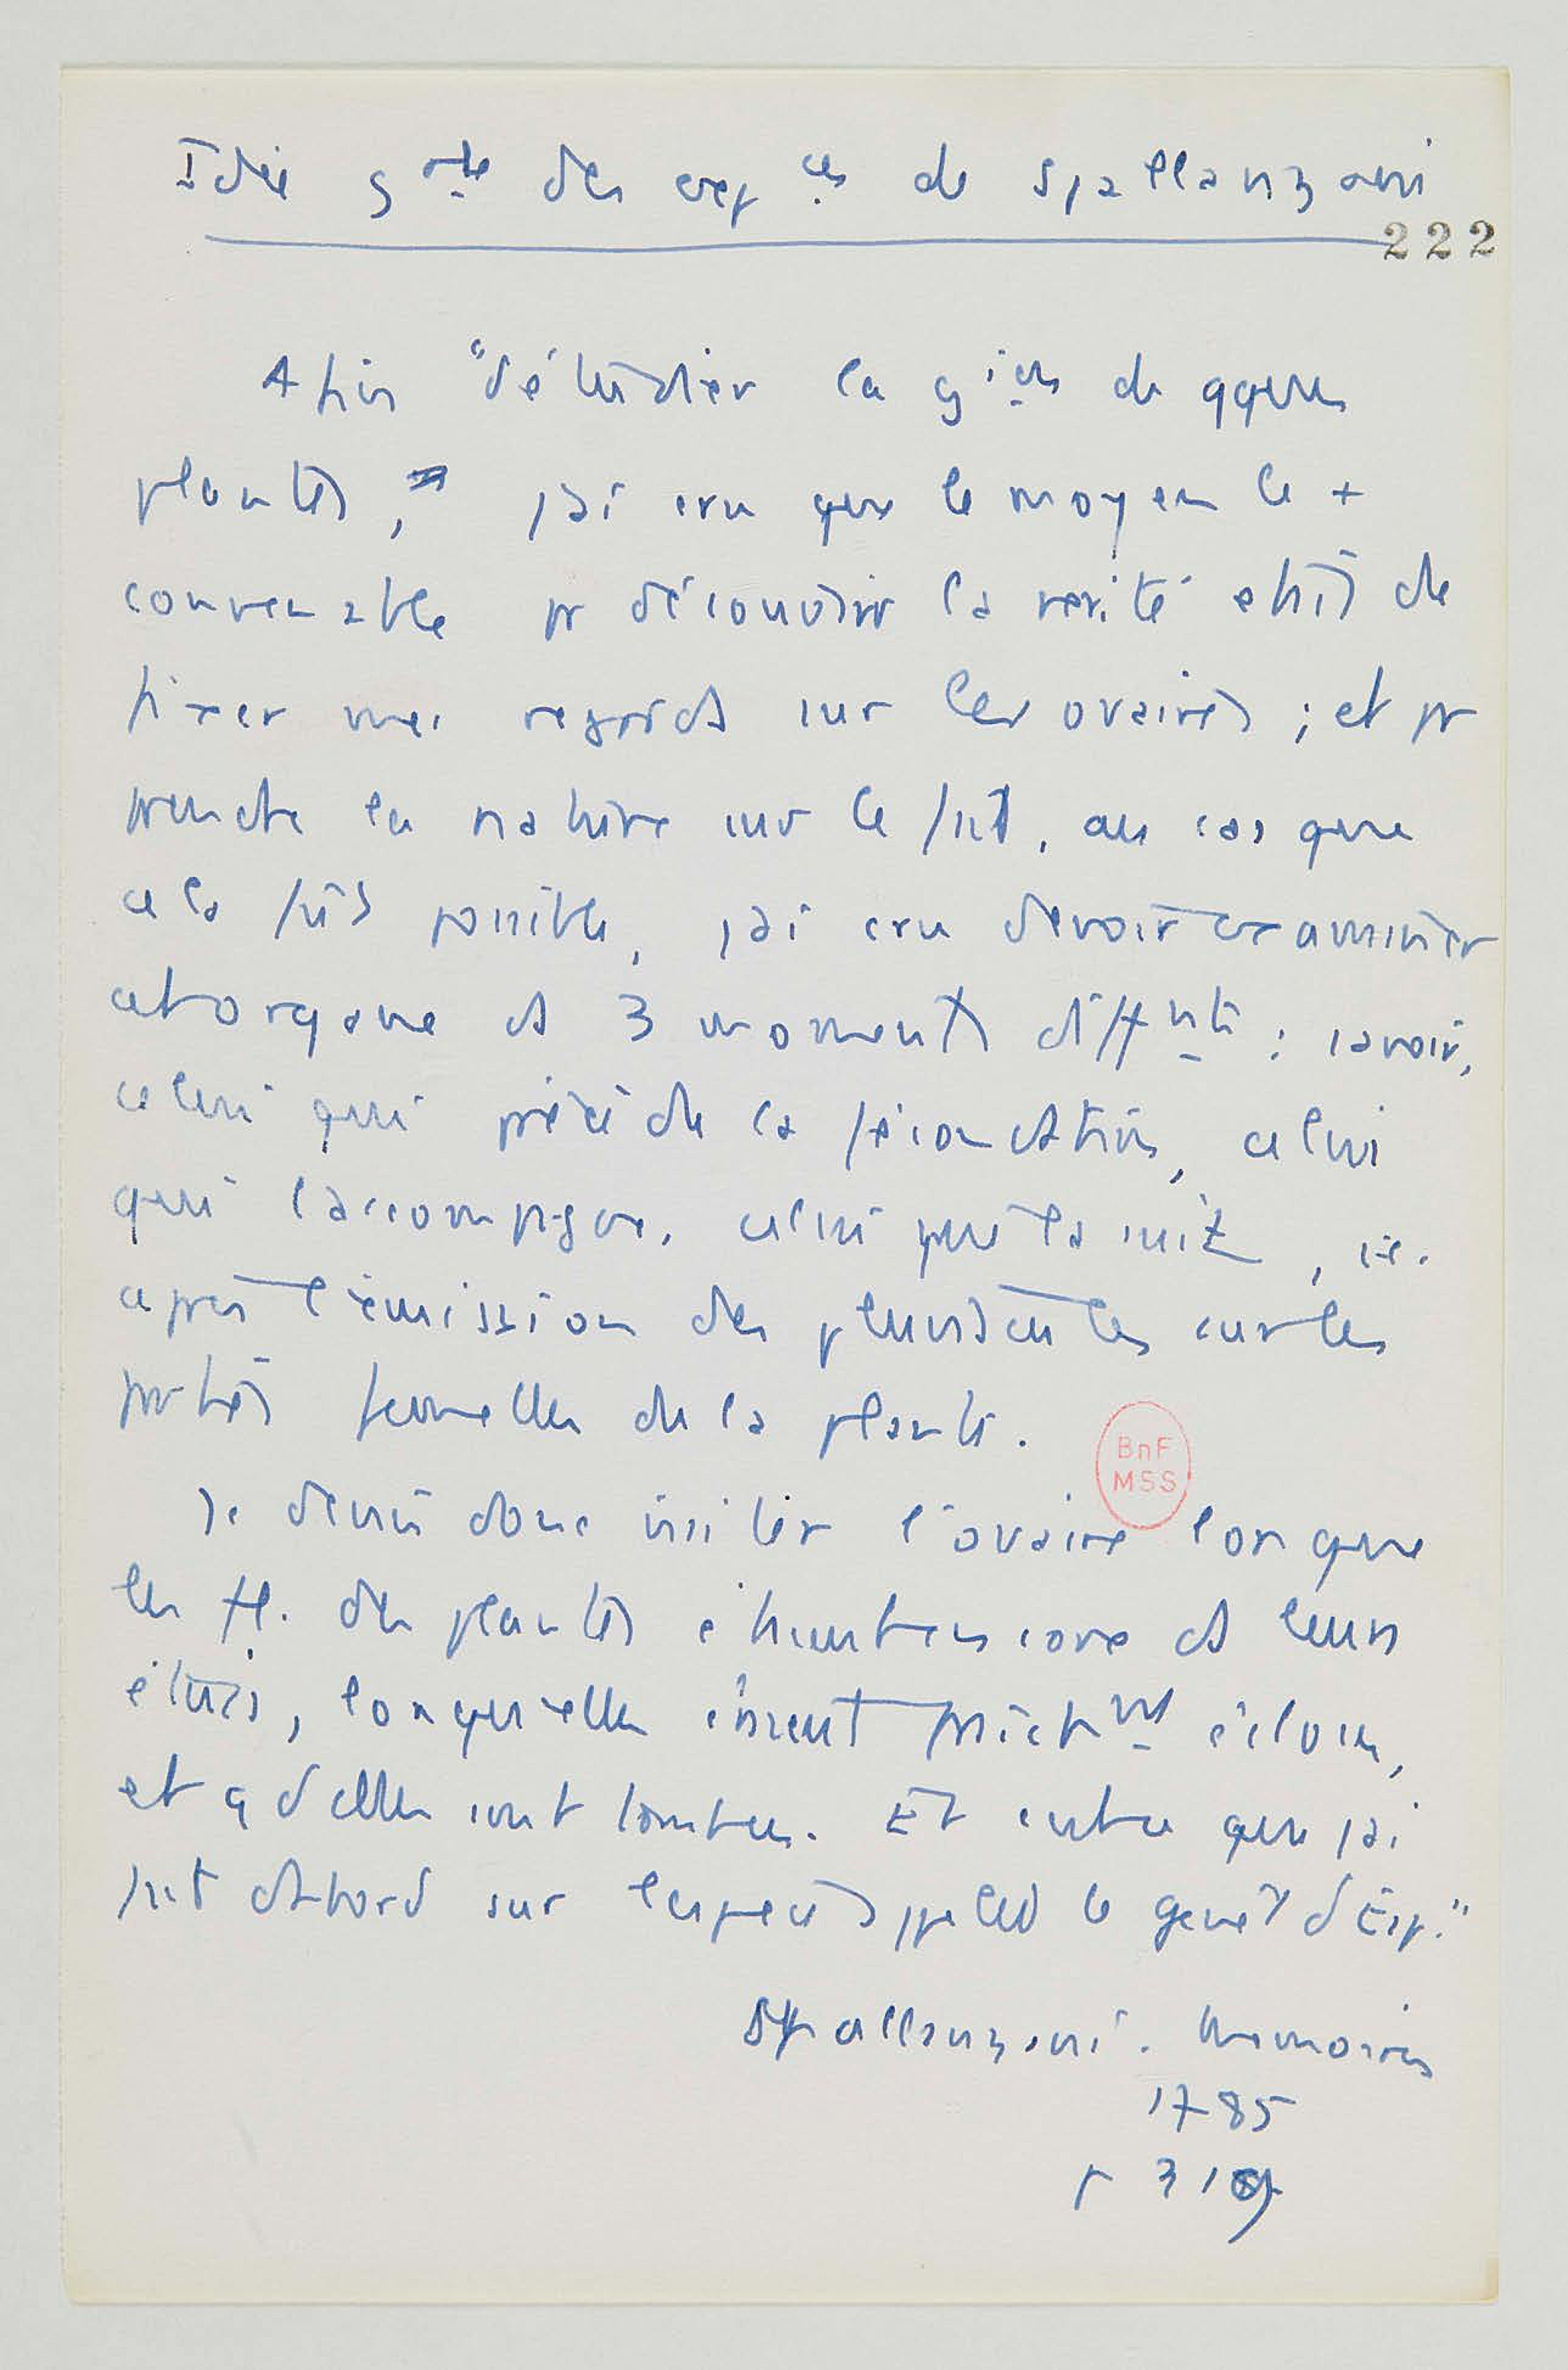 Idée g^ale des exp^ces de Spallanzani
222
Afin "d'étudier la g^ion de qques
plantes, j'ai cru que le moyen le +
convenable pr découvrir la vérité était de
fixer mes regards sur les ovaires ; et pr
prendre la nature sur le fait, au cas que
cela fût possible, j'ai cru devoir examiner
cet organe ds 3 moments diff^nts : savoir,
celui qui précède la fécondation, celui
qui l'accompagne, celui qui la suit, ie.
après l'émission des plumules sur les
parties femelles de la plante.
Je devais donc visiter l'ovaire lorsque
les fl. des plantes étaient encore ds leurs
étuis, lorsqu'elles étaient parfait^mt écloses,
et qd elles sont tombées. Et c'est ce que j'ai
fait d'abord sur l'espèce appelée le genêt d'Esp."
Spallanzani. Mémoires
1785
p 319
BnF
MSS